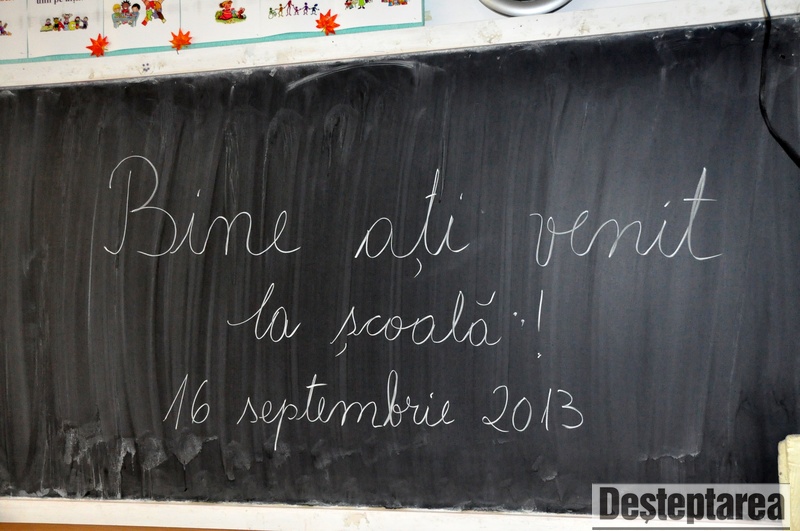 Bine ați venit
la școală !
16 septembrie 2013
Deșteptarea